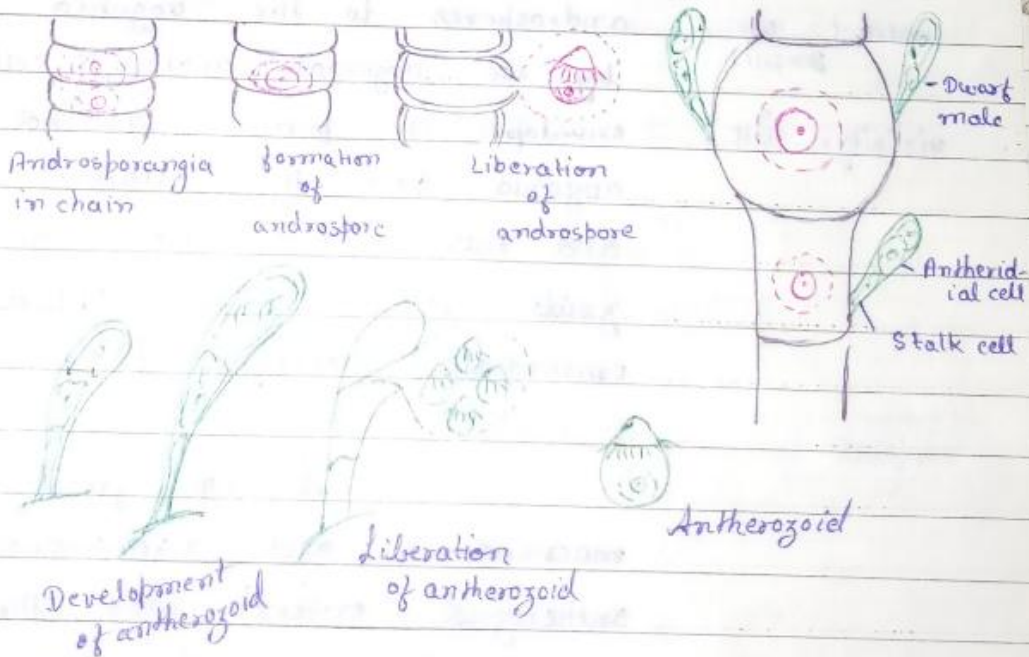 Androsporangia
in chain
formation
of
androspore
Liberation
of
androspore
Dwarf
male
Antherid-
ial cell
Stalk cell
Development
of antherozoid
Liberation
of antherozoid
Antherozoid